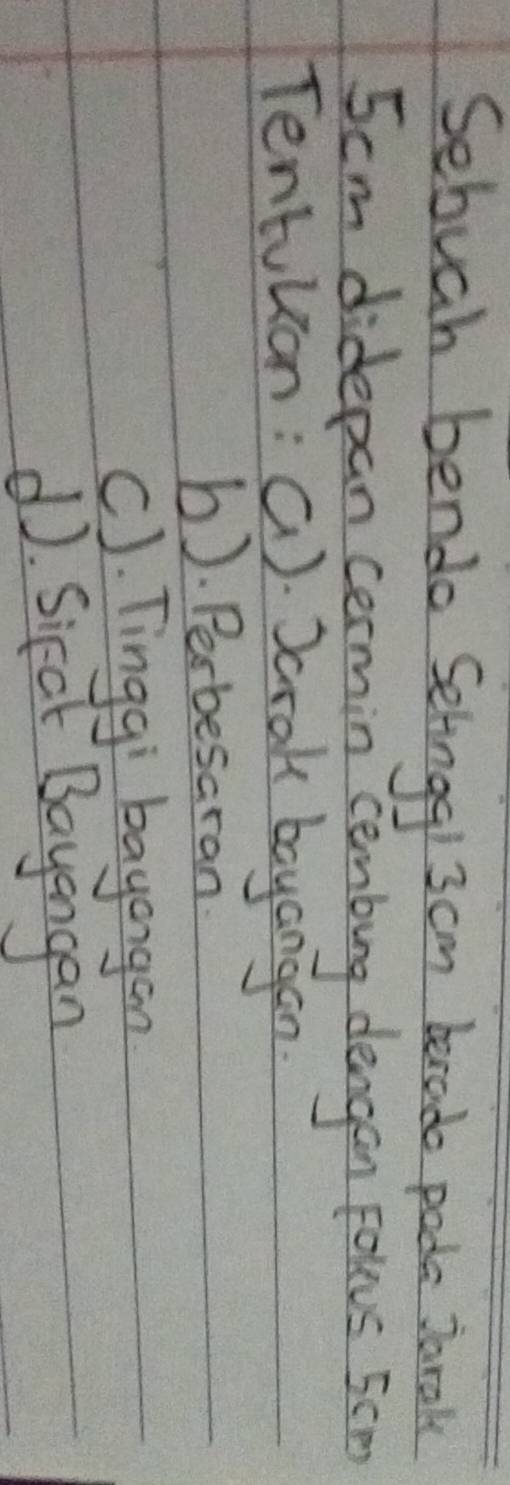 Sebuah benda Setinggi 3cm berada pada Jarak
5cm didepan cermin cembung dengan Fokus 5cm
Tentukan : a). Jarak bayangan.
b). Perbesaran.
c). Tinggi bayangan.
d). Sifat Bayangan